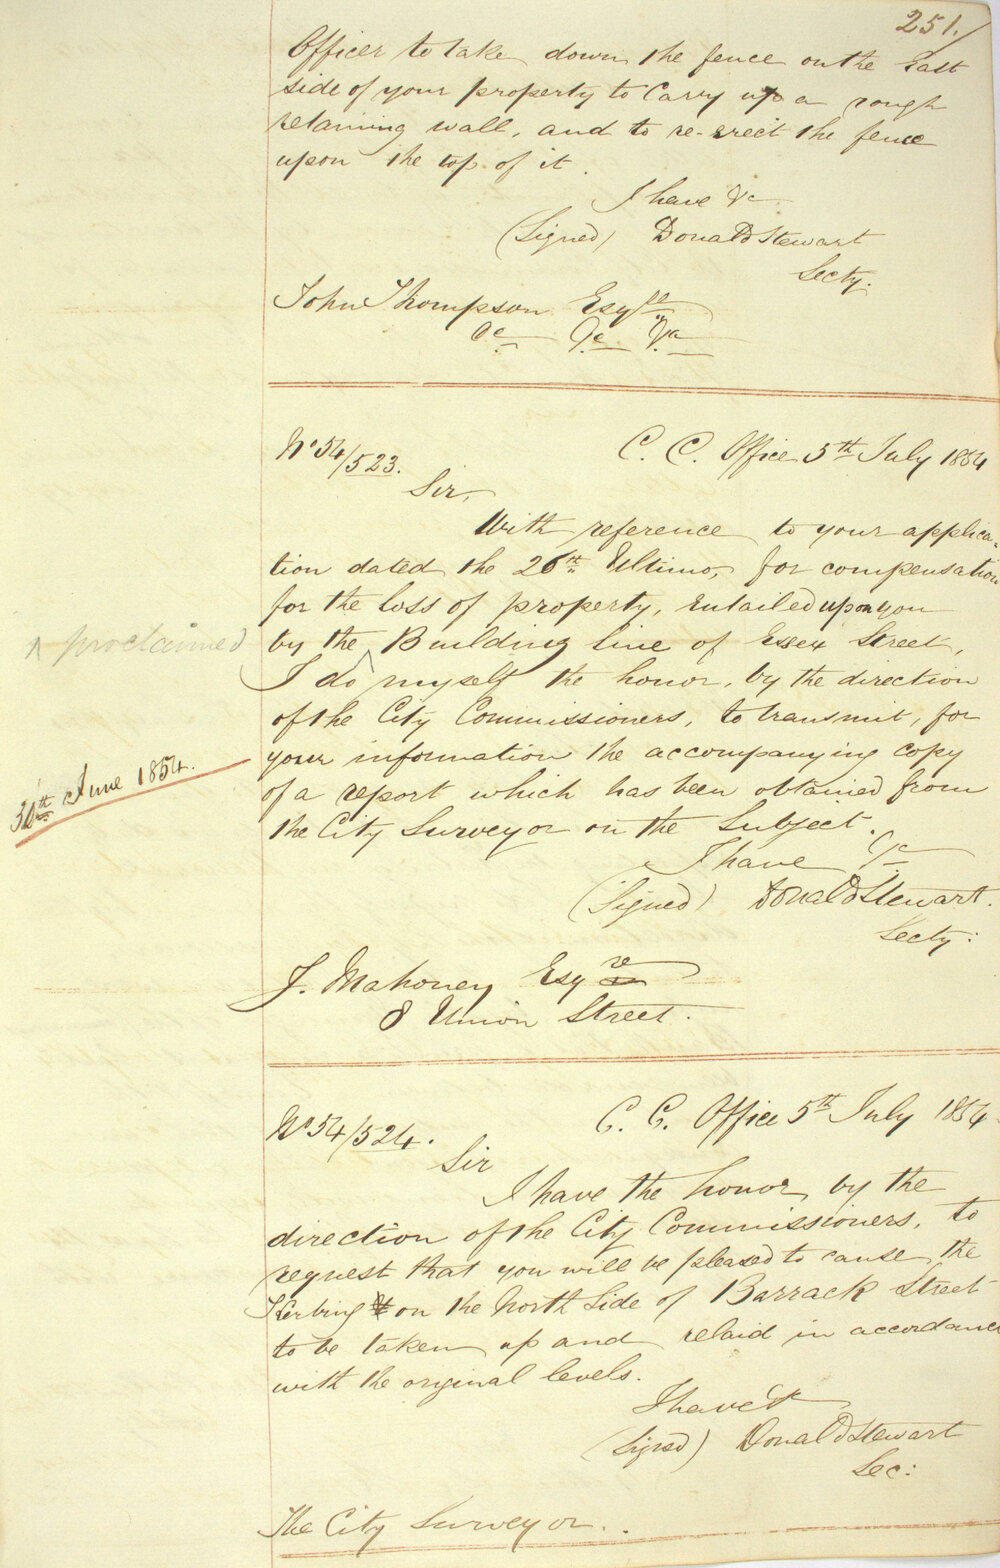 251.
Officer to take down the fence on the East
side of your property to Carry up a rough
retaining wall, and to re-erect the fence
upon the top of it.
I have &c
(Signed) Donald Stewart
Secty.
John Thompson Esqre
&c &c &c
No 54/523.
C. C. Office 5th July 1854
Sir,
With reference to your applica-
tion dated the 26th Ultimo, for compensation
for the loss of property, entailed upon you
^ proclaimed
by the ^ Building line of Essex Street,
I do myself the honor, by the direction
of the City Commissioners, to transmit, for
your information the accompanying copy
30th June 1854.
of a report which has been obtained from
the City Surveyor on the Subject.
I have &c
(Signed) Donald Stewart.
Secty:
J. Mahoney Esqre
8 Union Street.
No 54/524.
C. C. Office 5th July 1854
Sir
I have the honor, by the
direction of the City Commissioners, to
request that you will be pleased to cause the
Kerbing on the North Side of Barrack Street
to be taken up and relaid in accordance
with the original levels.
I have &
(Signed) Donald Stewart
Sec:
The City Surveyor.